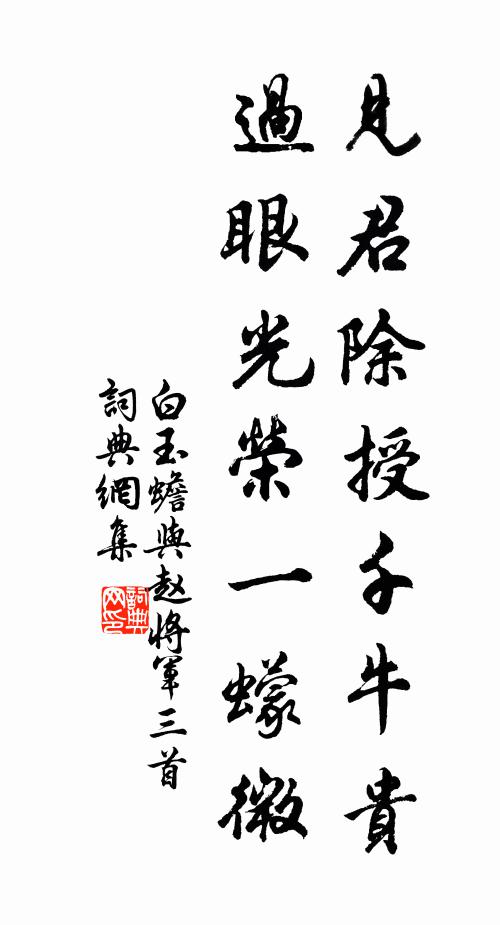 見君除授千牛貴
過眼光榮一蠓微
白玉蟾與赵將軍三首
詞典網集
詞典网印